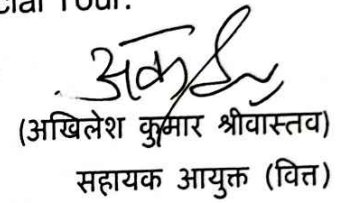 Tour.
(अखिलेश कुमार श्रीवास्तव)
सहायक आयुक्त (वित्त)